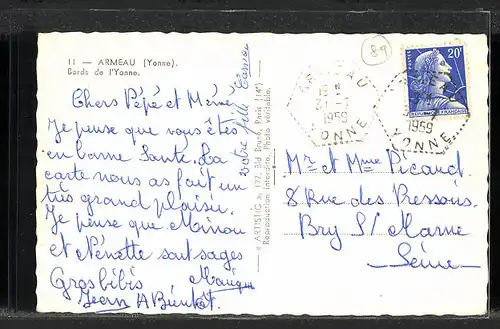 11 - ARMEAU (Yonne).
Bords de l'Yonne.
Chers Pépé et Mémé
Je pense que vous êtes
en bonne Santé. La
carte nous as fait un
très grand plaisir.
Je pense que Minou
et Nénette sont sages
Gros bibis
Jean A Bientôt.
votre fille
« ARTISTIC », 177, Bld Brune, Paris (14e)
Reproduction interdite. Photo véritable.
89
ARMEAU
31-7
1959
YONNE
POSTES
20F
1959
YONNE
Mr et Mme Picard
8 Rue des Pressoirs.
Bry S/ Marne
Seine